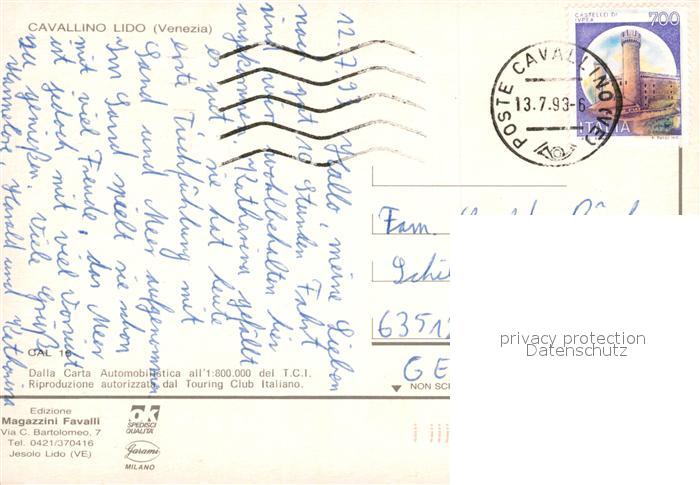 CAVALLINO LIDO (Venezia)
12.7.93
Hallo, meine Lieben
nach gut 10 Stunden Fahrt
sind wir wohlbehalten hier
angekommen. Katharina gefällt
es gut, sie hat heute
erste Tuchfühlung mit
Sand und Meer aufgenommen
Im Sand spielt sie schon
mit viel Freude, das Meer
ist jedoch mit viel Vorsicht
zu genießen. Viele Grüße
Hannelore, Harald und Katharina
CASTELLO DI
IVREA
700
ITALIA
POSTE CAVALLINO (VE)
13.7.93-6
Fam.
Schil
6351
GE
privacy protection
Datenschutz
CAL 19
Dalla Carta Automobilistica all'1:800.000 del T.C.I.
Riproduzione autorizzata dal Touring Club Italiano.
NON SC
Edizione
Magazzini Favalli
Via C. Bartolomeo, 7
Tel. 0421/370416
Jesolo Lido (VE)
ok
SPEDISCI
QUALITÀ
Garami
MILANO